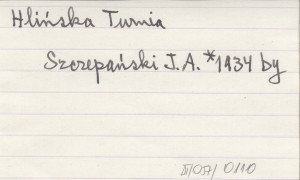 Hlińska Turnia
Szczepański J.A. *1934 by
III/07/ 0110